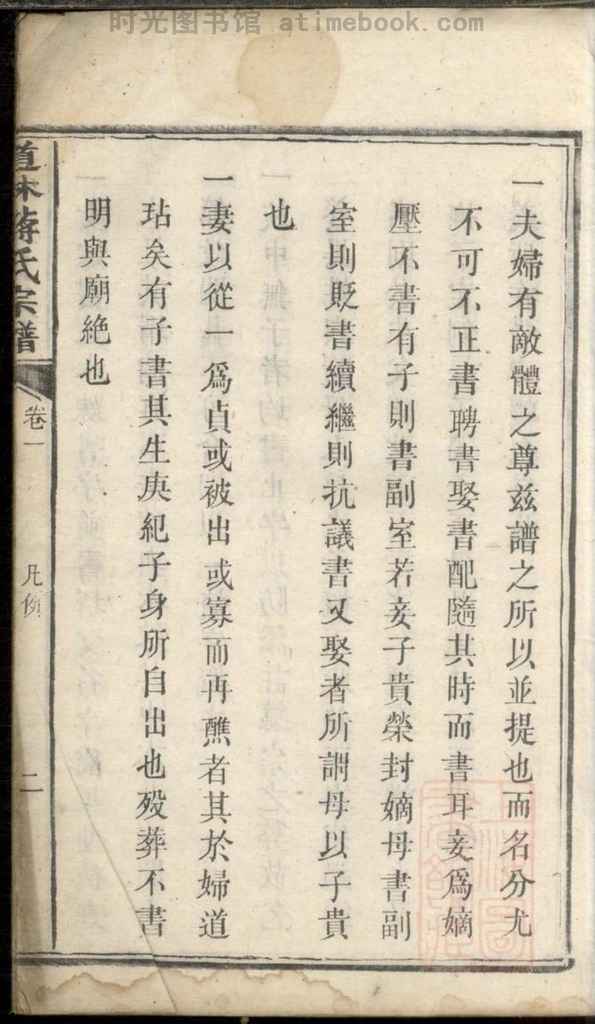 时光图书馆 atimebook.com
一夫婦有敵體之尊兹譜之所以並提也而名分尤
不可不正書聘書娶書配隨其時而書耳妾爲嫡
壓不書有子則書副室若妾子貴榮封嫡母書副
室則貶書續繼則抗議書又娶者所謂母以子貴
也
一妻以從一爲貞或被出或寡而再醮者其於婦道
玷矣有子書其生庚紀子身所自出也殁葬不書
明與廟絶也
道林蔣氏宗譜 卷一 凡例 二